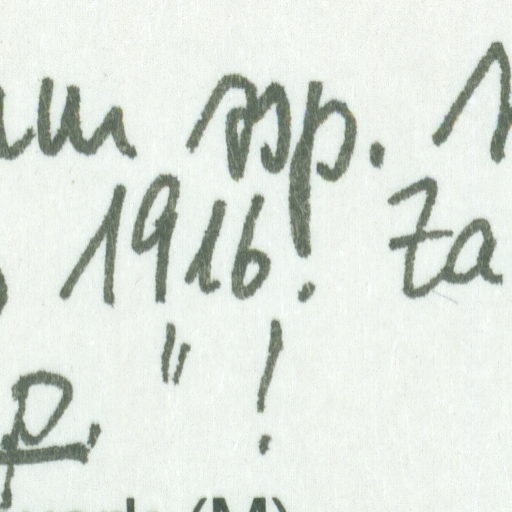 ssp.
1916! Za
p. " !
(M)